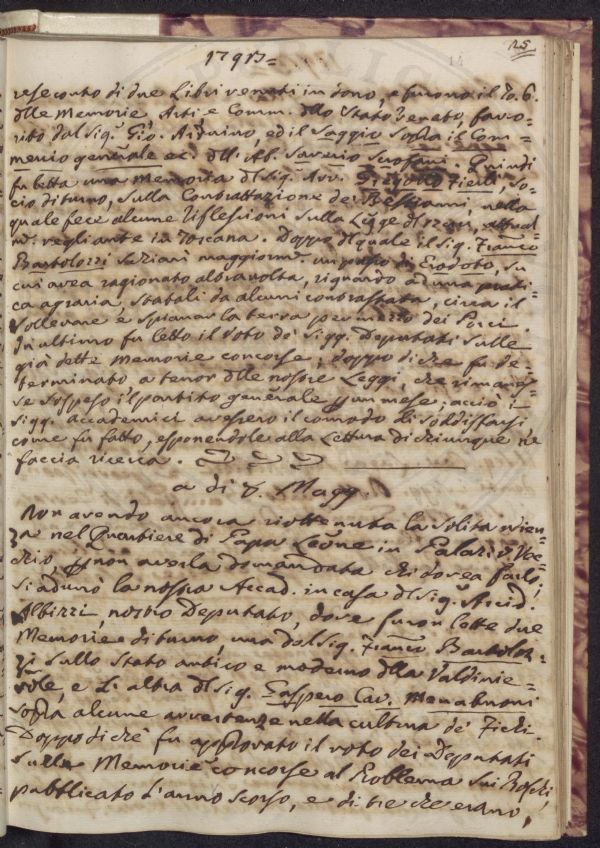 1793=
125
14
rese conto di due Libri venuti in dono, e furono il To. 6.
dlle Memorie, Arti e Comm. dllo Stato Veneto, favo-
rito dal Sigr. Gio. Arduino, ed il Saggio sopra il Com-
mercio generale ec. dll' Ab. Saverio Scrofani. Quindi
fu letta una Memoria dl Sigr. Avv. Gregorio Fierli, So-
cio di turno, sulla Contrattazione dei Bestiami, nella
quale fece alcune riflessioni sulla Legge di
vegliante in Toscana. Doppo dl quale il Sig. Franco
Bartolozzi un passo di Erodoto, su
cui avea ragionato altra volta, riguardo ad una prati-
ca agraria, statali da alcuni contrastata, circa il
sollevare e spianar la terra per mezzo dei Porci.
In ultimo fu letto il Voto de' Sigg. Deputati sulle
già dette Memorie concorse; doppo di che fu de-
terminato a tenor dlle nostre Leggi, che rimanes-
se sospeso il partito generale p un mese; acciò i
Sigg. Accademici avessero il comodo di soddisfarsi
come fu fatto, esponendole alla Lettura di chiunque ne
faccia ricerca.
a di 8. Magg.
Non avendo ancora riottenuta la solita
nel Quartiere di Papa Leone in Palazzo Vec-
chio, p non averla domandata chi dovea farlo,
si adunò la nostra Accad. in casa dl Sigr. Arcid.
Albizzi, nostro Deputato, dove furon lette due
Memorie di turno, una dal Sig. Franco Bartoloz-
zi sullo stato antico e moderno dlla Valdinie-
vole, e l'altra dl Sig. Gaspero Cav. Menabuoni
sopra alcune avvertenze nella cultura de' Fichi.
Doppo di chè fu approvato il voto dei Deputati
sulle Memorie concorse al Problema sui Boschi,
pubblicato l'anno scorso, e di tre che erano,